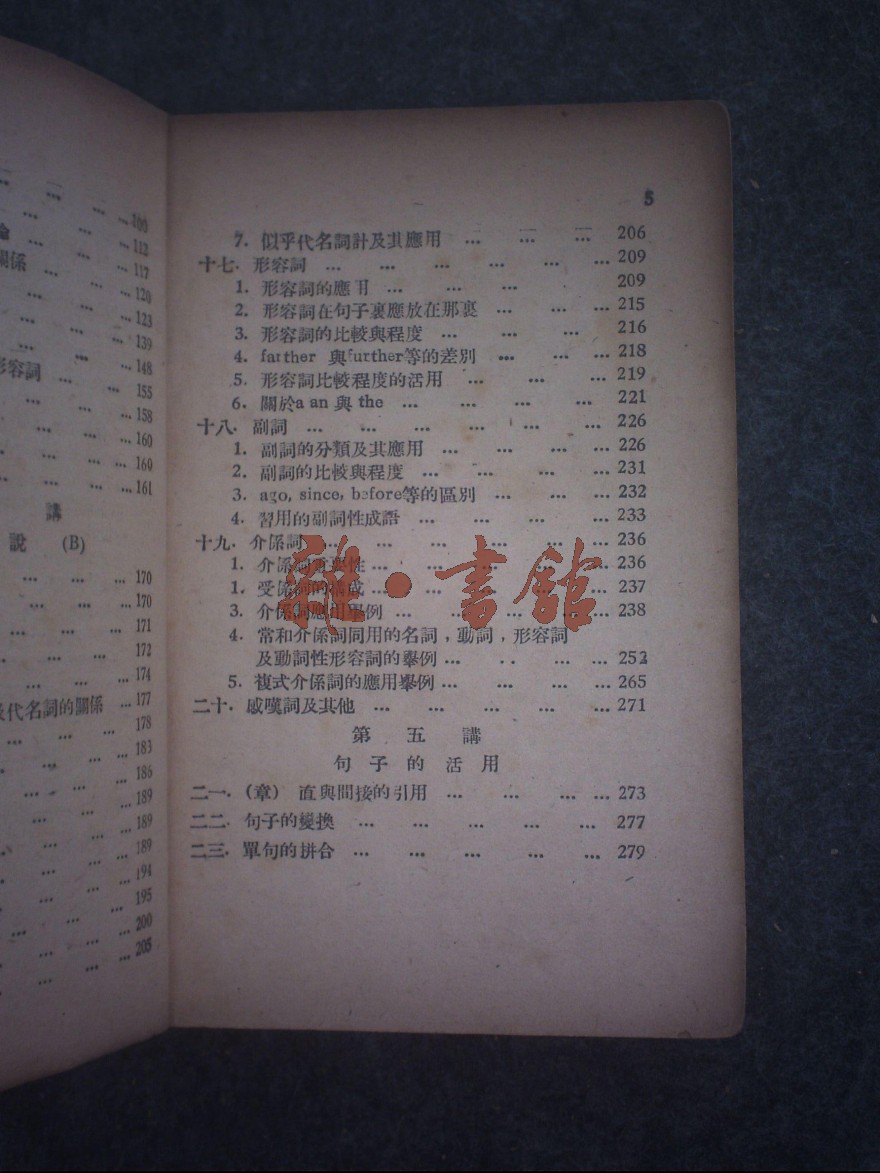 100
112
關係 117
120
123
139
148
形容詞
155
158
160
160
161
講
說 (B)
... ... ... 170
... ... ... 170
... ... ... 171
... ... ... 172
... ... ... 174
代名詞的關係 ... 177
178
183
186
189
189
189
194
195
200
205
5
7. 似乎代名詞計及其應用 ... ... ... 206
十七. 形容詞 ... ... ... ... ... ... 209
1. 形容詞的應用 ... ... ... 209
2. 形容詞在句子裏應放在那裏 ... ... ... 215
3. 形容詞的比較與程度 ... ... ... ... 216
4. farther 與further等的差別 ... ... ... 218
5. 形容詞比較程度的活用 ... ... ... 219
6. 關於a an 與 the ... ... ... ... 221
十八. 副詞 ... ... ... ... ... ... 226
1. 副詞的分類及其應用 ... ... ... ... 226
2. 副詞的比較與程度 ... ... ... ... 231
3. ago, since, before等的區別 ... ... ... 232
4. 習用的副詞性成語 ... ... ... ... 233
十九. 介係詞 ... ... ... ... ... ... 236
1. 介係詞重要性 ... ... ... ... ... 236
1. 受係詞的構成 ... ... ... ... ... 237
3. 介係詞應用舉例 ... ... ... ... 238
4. 常和介係詞同用的名詞,動詞,形容詞
及動詞性形容詞的舉例 ... ... ... ... 252
5. 複式介係詞的應用舉例 ... ... ... ... 265
二十. 感嘆詞及其他 ... ... ... ... ... 271
第五講
句子的活用
二一. (章) 直與間接的引用 ... ... ... ... 273
二二. 句子的變換 ... ... ... ... ... 277
二三. 單句的拼合 ... ... ... ... ... 279
雜·書館